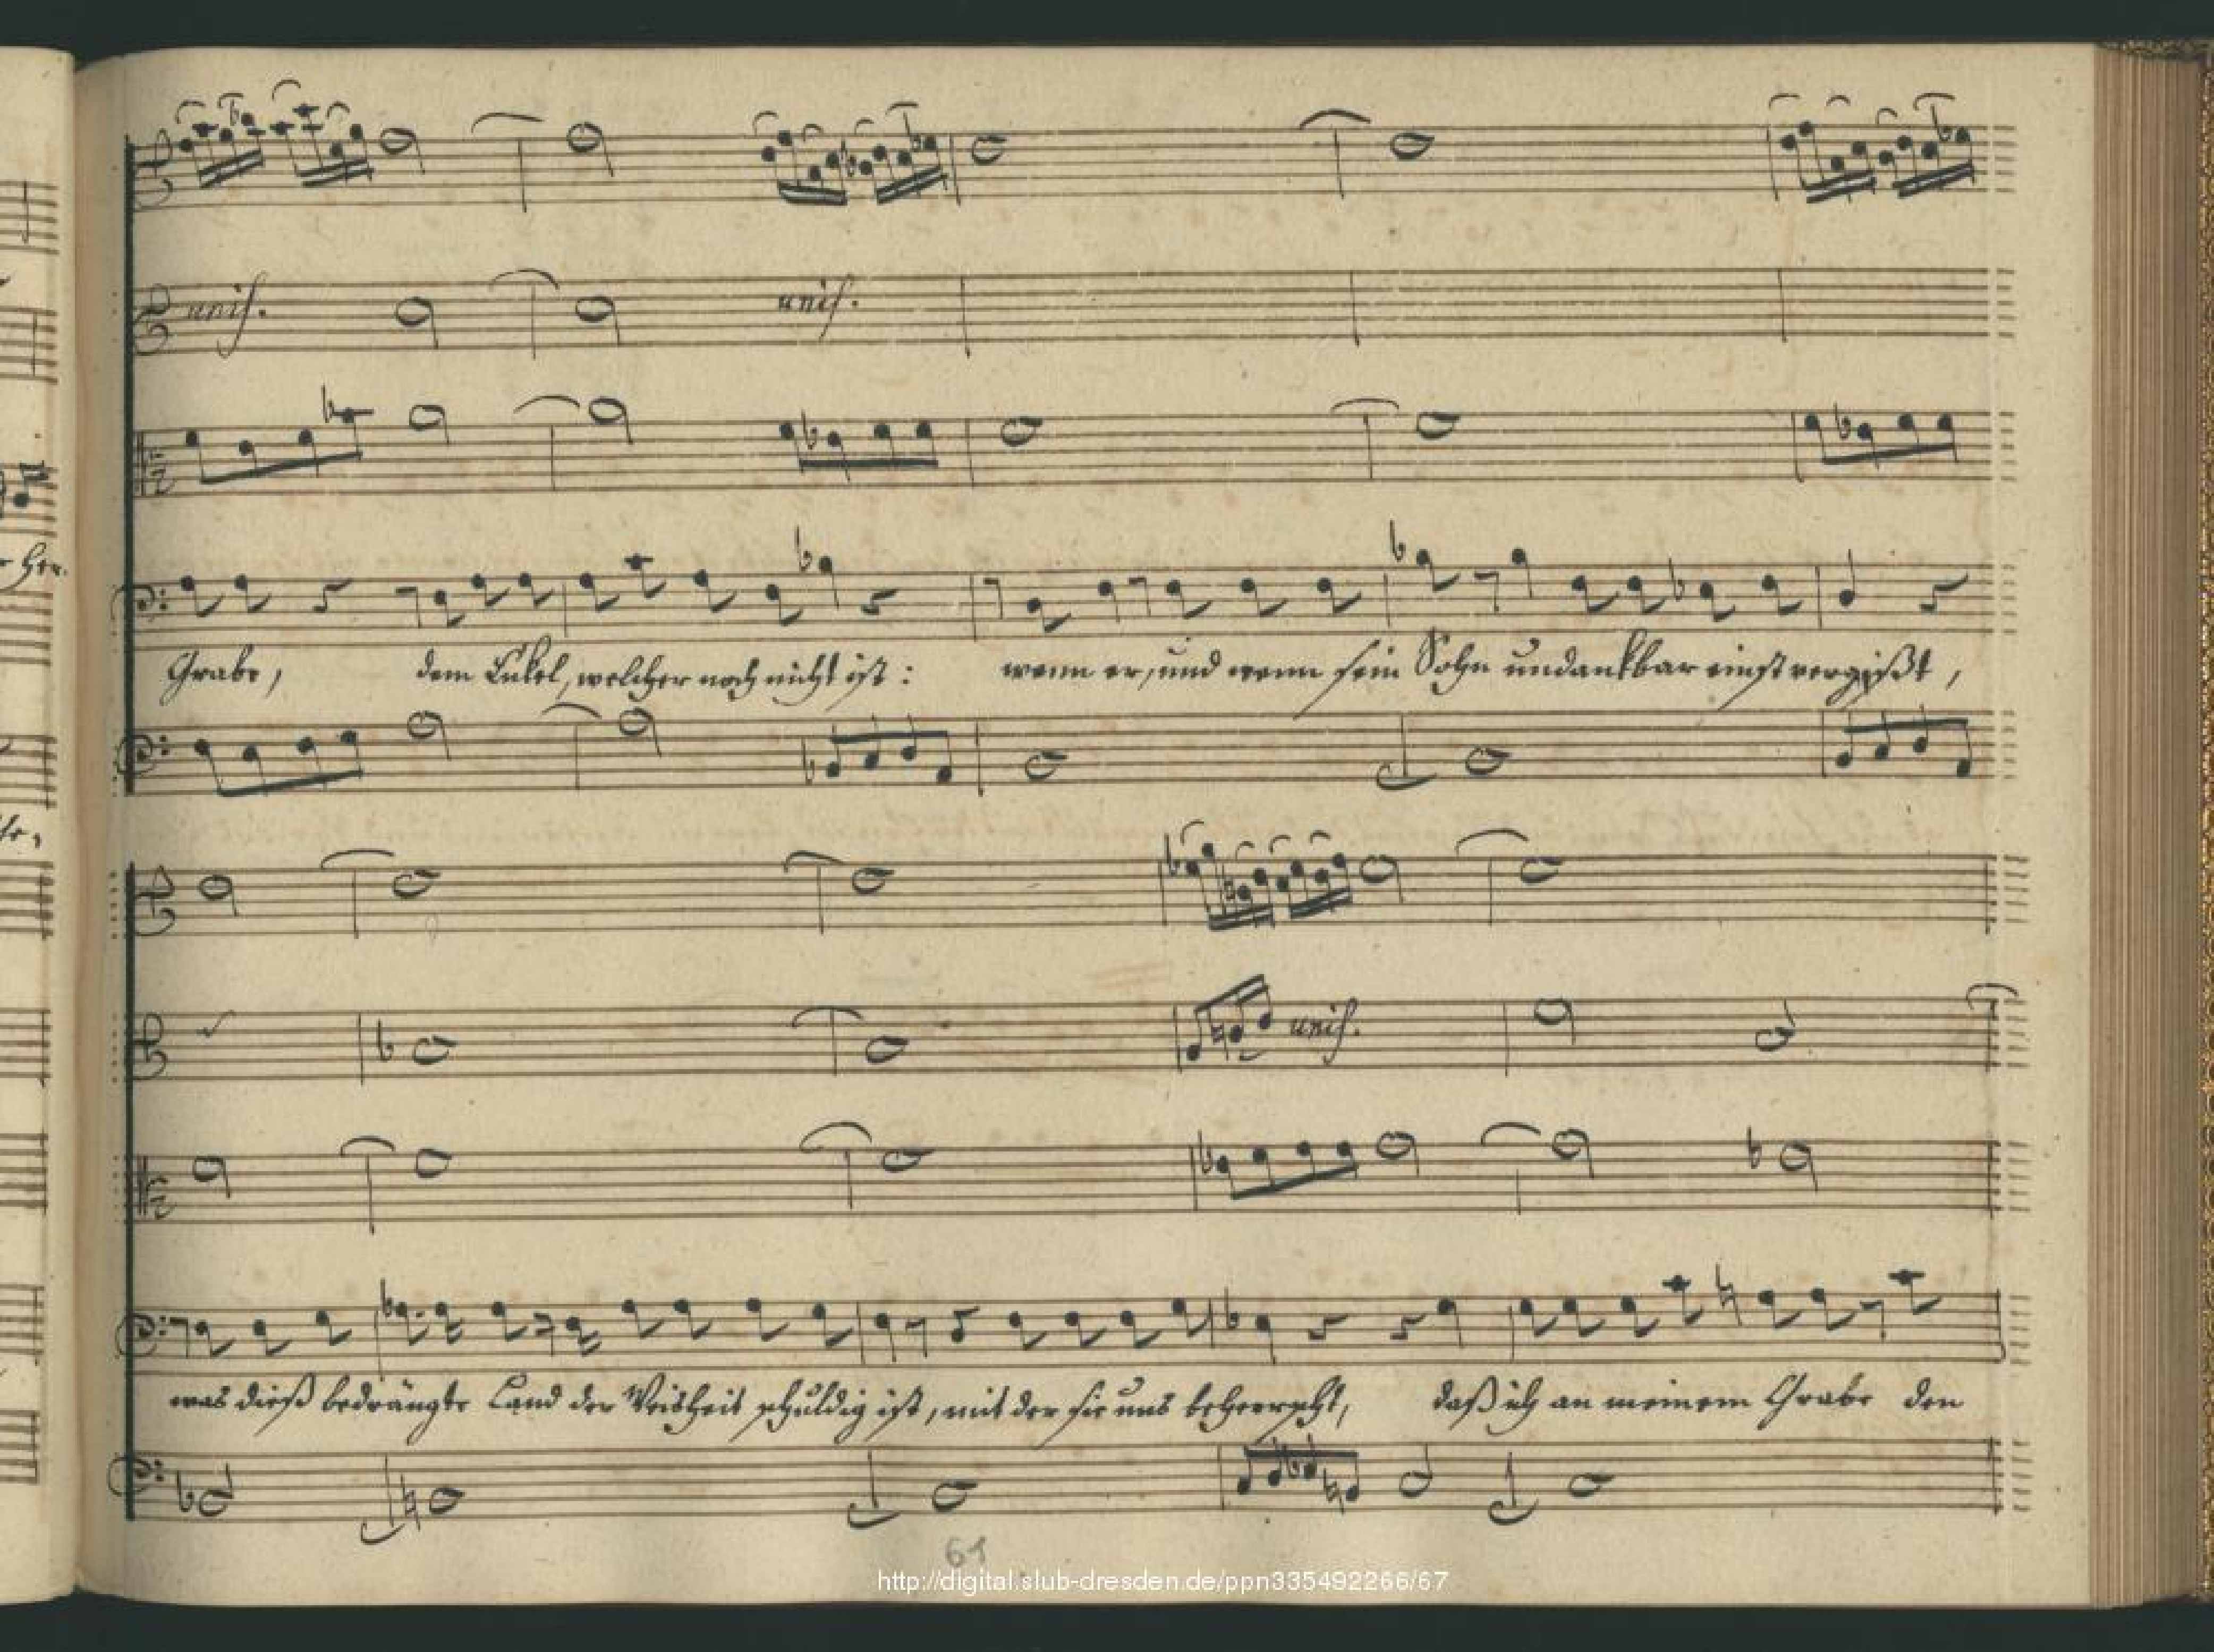 her.
unis.
unis.
Grabe, dem Enkel, welcher noch nicht ist: wenn er, und wenn sein Sohn undankbar einst vergißt,
unis.
was dieß bedrängte Land der Weisheit schuldig ist, mit der sie uns beherrscht, daß ich an meinem Grabe den
61
http://digital.slub-dresden.de/ppn335492266/67